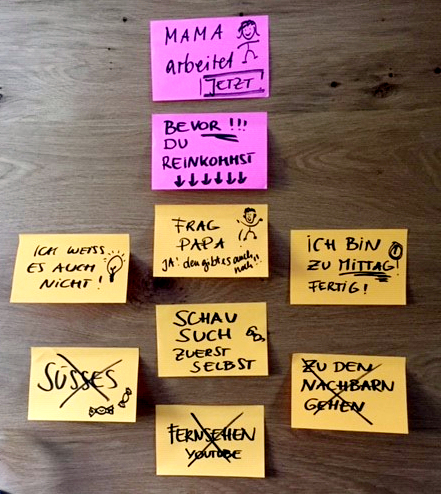 MAMA
arbeitet
JETZT
BEVOR !!!
DU
REINKOMMST
↓↓↓↓↓↓
FRAG
PAPA
JA! den gibt es auch
noch!!
ICH WEISS
ES AUCH
NICHT!
ICH BIN
ZU MITTAG!
FERTIG!
SCHAU
SUCH
ZUERST
SELBST
SÜSSES
ZU DEN
NACHBARN
GEHEN
FERNSEHEN
YOUTUBE